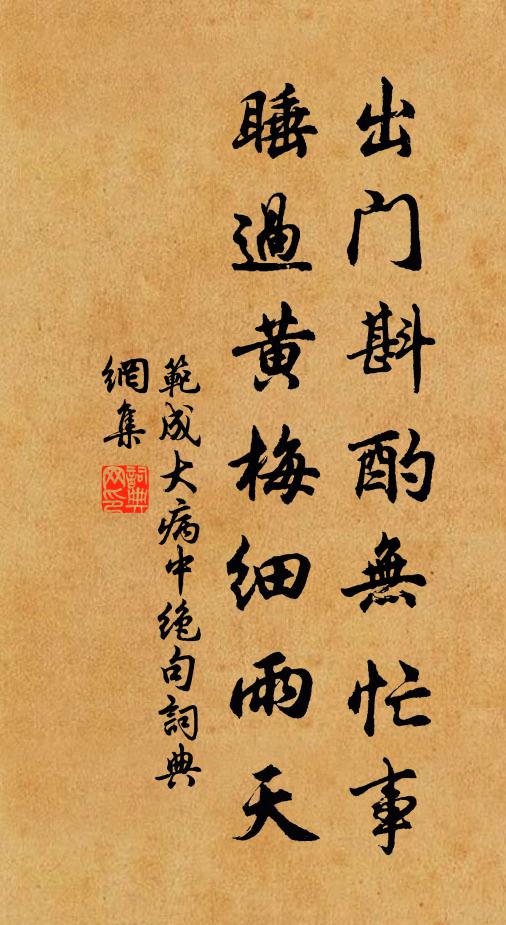 出门斟酌無忙事
睡過黄梅細雨天
範成大病中绝句詞典
網集
詞典
网印